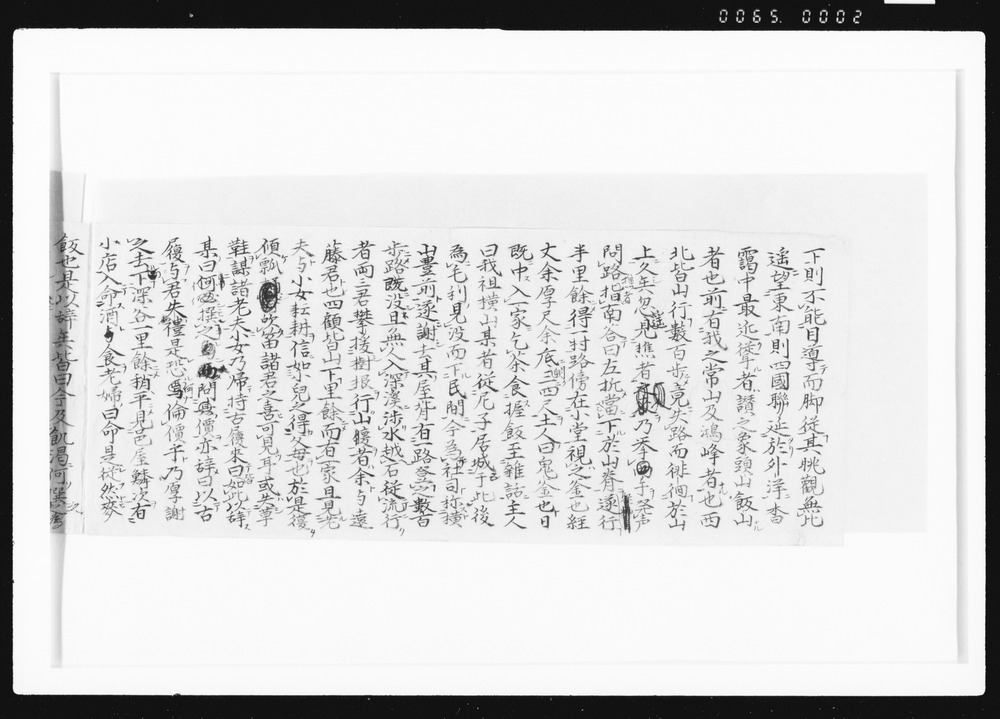 0065.0002
下則不能自導而脚從其眺觀無比
遥望東南則四國聯延於外洋杳
靄中最近聳者讃之象頭山飯山
者也前有我之常山及鴻峰者也西
北皆山行數百步竟失路而徘徊於山
上久乎忽見樵者乃奉手
問路指南谷曰左折當下於山脊遂行
半里餘得一村路傍在小堂視之釜也經
丈余厚尺余底三四尺土人曰鬼釜也日
既中入一家乞茶食握飯至雜話主人
曰我祖横山某者從尼子居城于北後
為毛利見没而下民間今為社司称横
山豊前遂謝去其屋背有一路登之數百
步路既没且無人深澤涉水越石從流行
者两三君攀援樹根行山傍者余与遠
藤君也四顧皆山下里餘而有一家且見老
夫与小女耘耕信如小兒之得父母也於是復
傾瓢當諸君之喜可見耳或失草
鞋謀諸老夫小女乃帰持古履來曰如此以辞
某曰何撰之問價亦辞曰以古
履与君失禮是恐焉倫價乎乃厚謝
之去下深谷一里餘稍平見邑屋鱗次有
小店入命酒与食老婦曰命是徒然麥
飯也是以辞矣皆曰今及飢渴何撰之